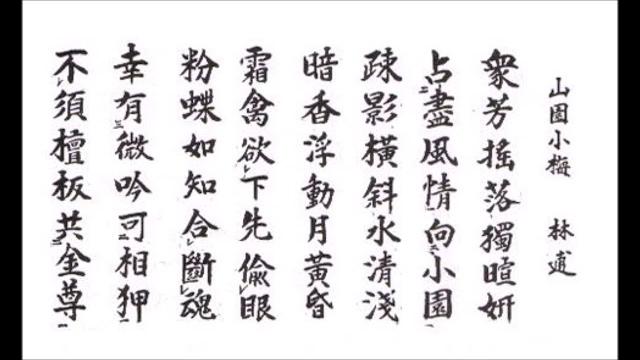 山園小梅 林逋
衆芳揺落獨暄妍
占盡風情向小園
疎影横斜水清淺
暗香浮動月黄昏
霜禽欲下先偸眼
粉蝶如知合斷魂
幸有微吟可相狎
不須檀板共金尊